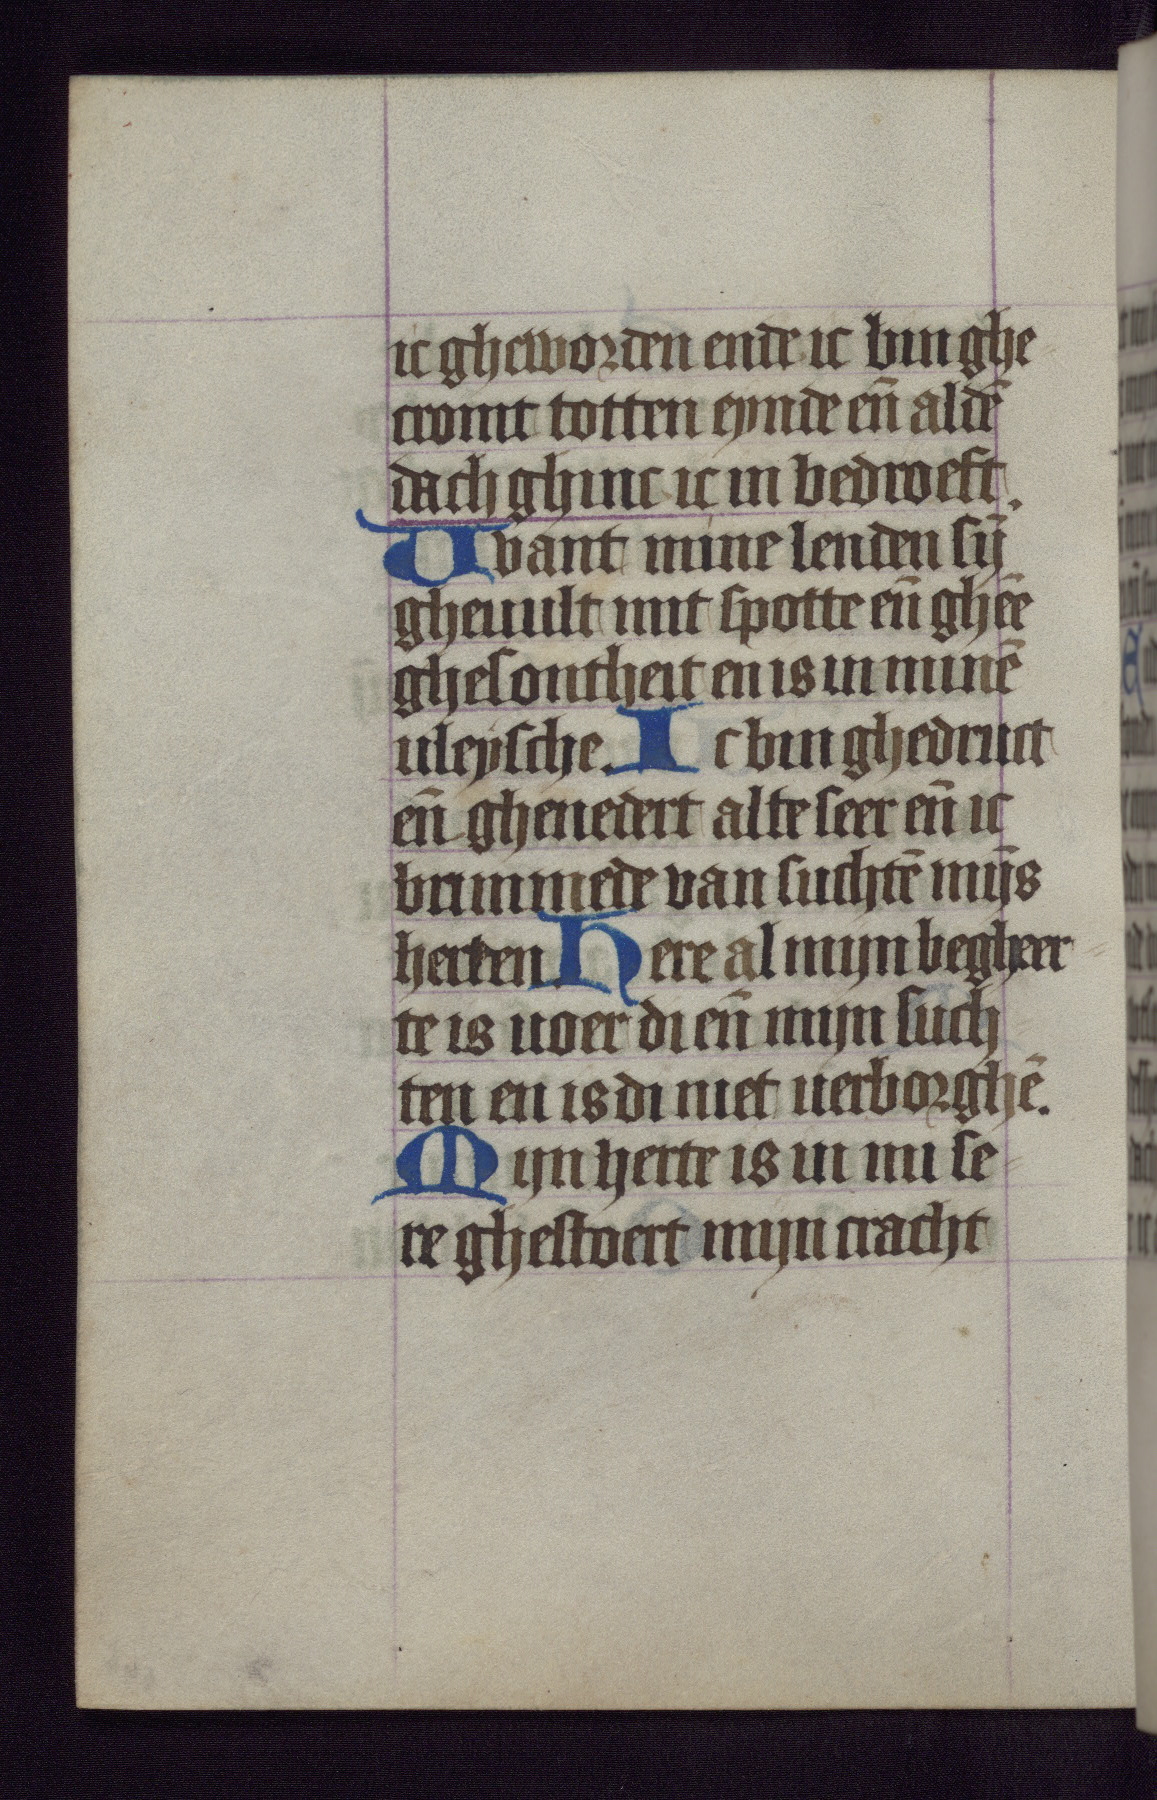 ic gheworden ende ic bin ghe
cromt totten eynde en̄ aldē
dach ghinc ic in bedroeft.
Uvant mine lenden sȳ
gheuult mit spotte en̄ ghēe
ghesontheit en is in minē
uleysche. Ic bin ghedruct
en̄ ghenedert alte seer en̄ ic
brimmede van suchtē mȳs
herten. Here al mijn begheer
te is uoer di en̄ mijn such
ten en is di niet uerborghē.
Mijn herte is in mi se
re ghestoert mijn cracht